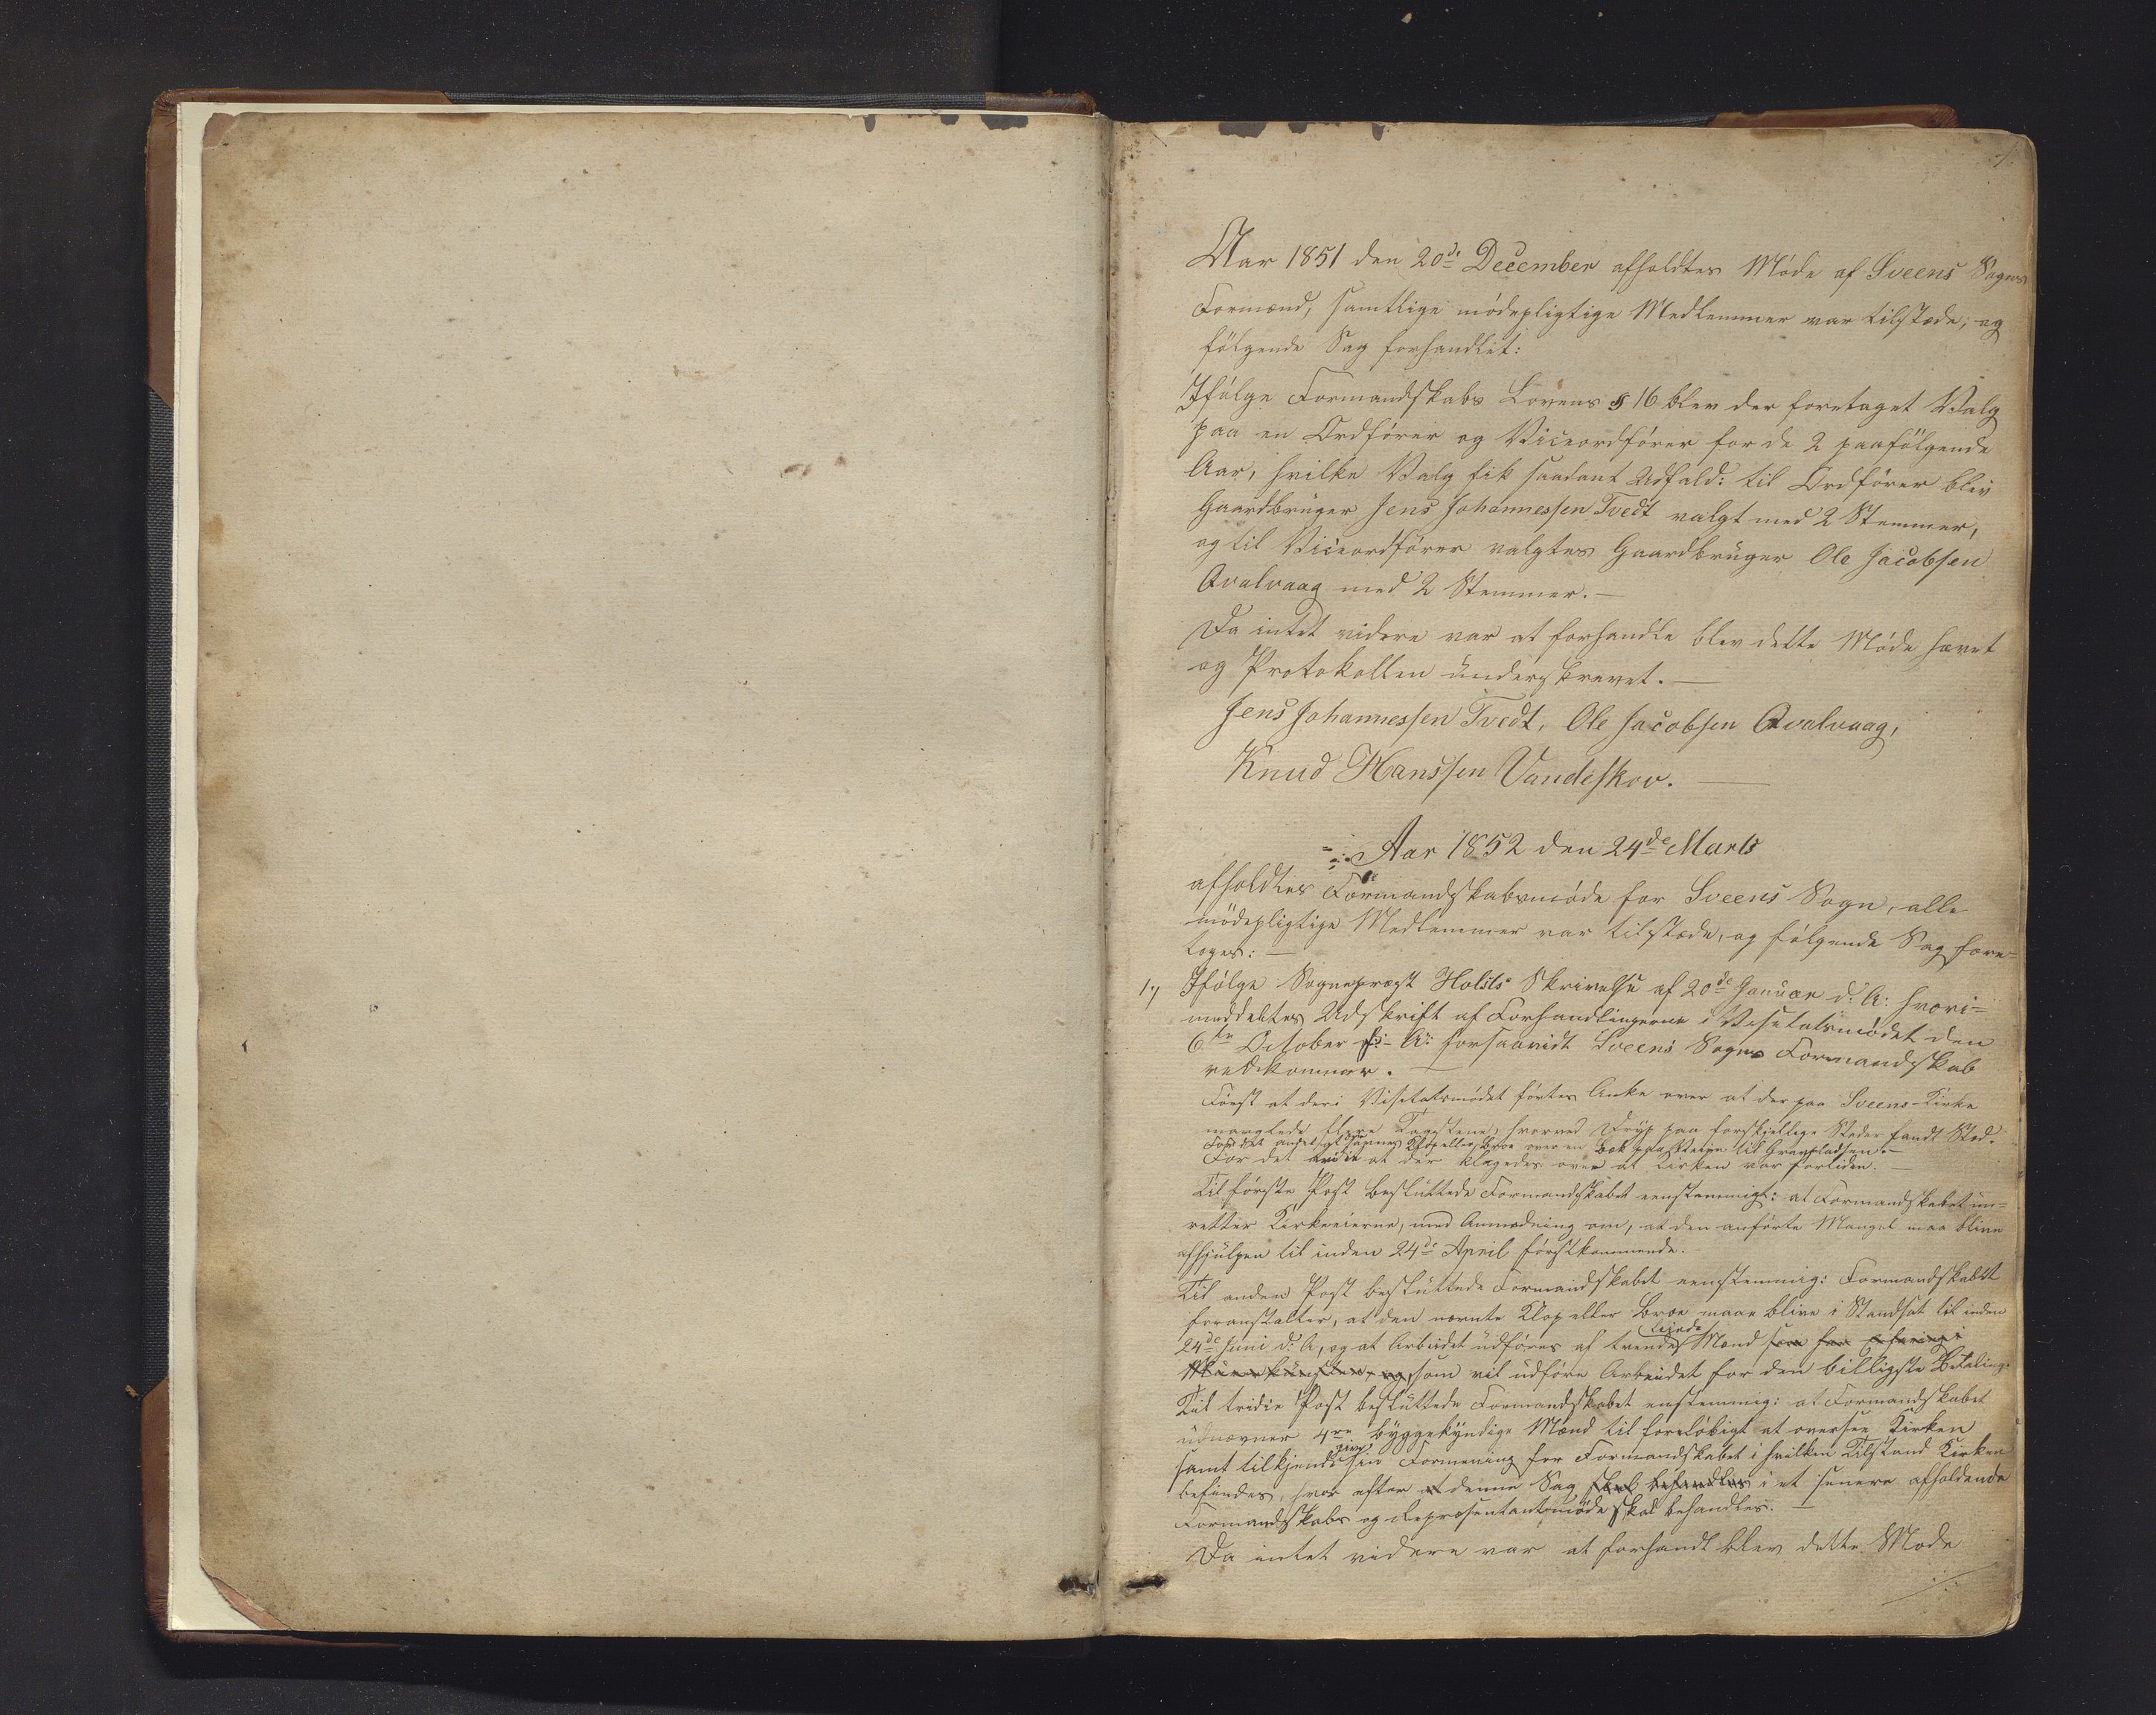 1.
Aar 1851 den 20de December afholdtes Møde af Sveens Sogns
Formænd, samtlige mødepligtige Medlemmer var tilstede, og
følgende Sag forhandlet:
Ifølge Formandskabs Lovens § 16 blev der foretaget Valg
paa en Ordfører og Viceordfører for de 2 paafølgende
Aar, hvilke Valg fik saadant Udfald: til Ordfører blev
Gaardbruger Jens Johannessen Tvedt valgt med 2 Stemmer,
og til Viceordfører valgtes Gaardbruger Ole Jacobsen
Qvalvaag med 2 Stemmer.—
Da intet videre var at forhandle blev dette Møde hævet
og Protokollen underskrevet.—
Jens Johannessen Tvedt, Ole Jacobsen Qvalvaag,
Knud Hanssen Vandeskov.—
Aar 1852 den 24de Marts
afholdtes Formandskabsmøde for Sveens Sogn, alle
mødepligtige Medlemmer var tilstede, og følgende Sag fore=
toges:—
1.) Ifølge Sognepræst Holsts Skrivelse af 20de Januar d: A: hvori=
meddeltes Udskrift af Forhandlingerne i Visitatsmødet den
6te October f: A: forsaavidt Sveens Sogns Formandskab
vedkommer.—
Først at der i Visitatsmødet førtes Anke over at der paa Sveens Kirke
manglede flere Tagstene, hvorved Dryp paa forskjellige Steder fandt Sted.
For det andet at Klop eller Broe over en Bek paa Veien til Gravpladsen.—
For det tridie at der klagedes over at Kirken var forliden.—
Til første Post besluttede Formandskabet eenstemmigt: at Formandskabet un=
retter Kirkeeierne, med Anmodning om, at den anførte Mangel maa blive
afhjulpen til inden 24de April førstkommende.
Til anden Post besluttede Formandskabet eenstemmig: Formandskabet
foranstalter, at den nævnte Klop eller Broe maae blive i Standsat til inden
24de Juni d: A, og at Arbeidet udføres af trende Mænd som har
som vil udføre Arbeidet for den billigste Betaling.
Til tridie Post besluttede Formandskabet enstemmig: at Formandskabet
udnævner 4re byggekyndige Mænd til foreløbigt at oversee Kirken
samt tilkjendegive sin Formening for Formandskabet i hvilken Tilstand Kirken
befindes, hvor efter at denne Sag skal behandles i et senere afholdende
Formandskabs og Repræsentantmøde skal behandles.—
Da intet videre var at forhandl blev dette Møde